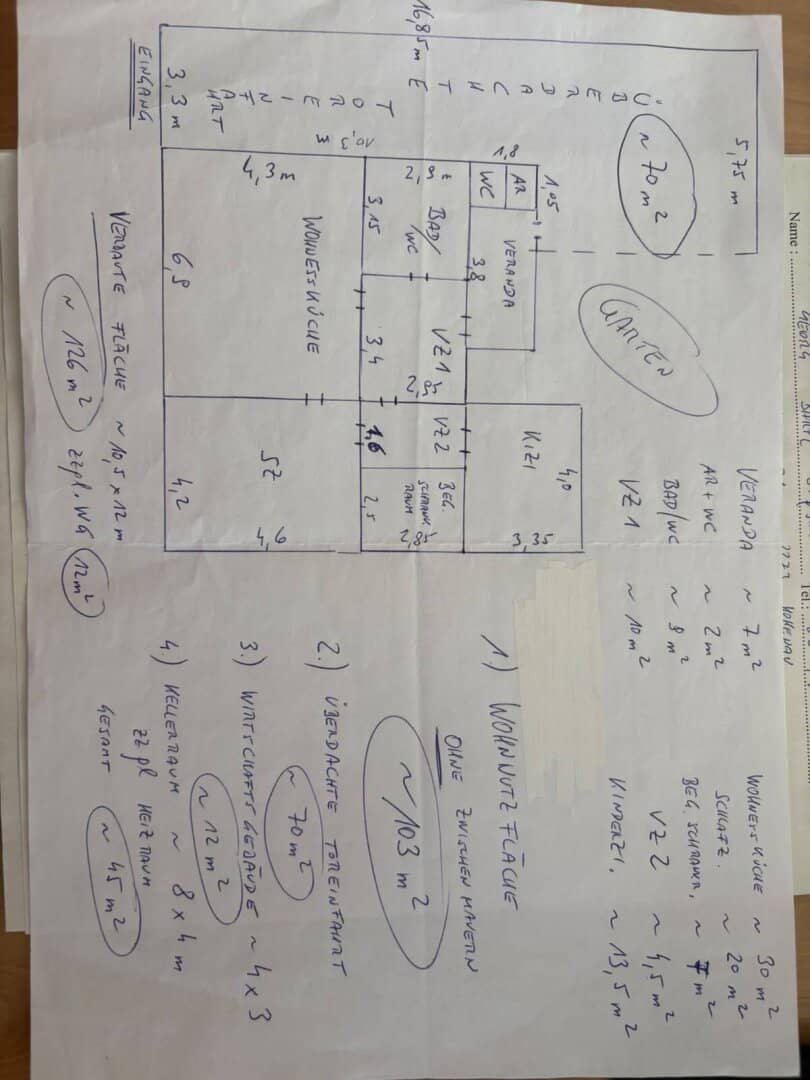 EINGANG
3,3 m
16,85 m
ÜBERDACHTE
TOREINFAHRT
5,75 m
~ 70 m²
4,3 m
6,9
WOHNESSKÜCHE
3,15
BAD/
WC
WC
AR
1,8
1,05
VERANDA
3,8
3,4
VZ 1
GARTEN
SZ
4,2
4,6
1,6
VZ 2
2,5
BEG.
SCHRANK
RAUM
2,85
KIZI
4,0
3,35
VERBAUTE FLÄCHE ~ 10,5 x 12 m
~ 126 m²
zzgl. WG 12 m²
VERANDA ~ 7 m²
AR + WC ~ 2 m²
BAD/WC ~ 9 m²
VZ 1 ~ 10 m²
WOHNESSKÜCHE ~ 30 m²
SCHLAFZ. ~ 20 m²
BEG. SCHRANKR. ~ 7 m²
VZ 2 ~ 4,5 m²
KINDERZI. ~ 13,5 m²
1.) WOHNNUTZFLÄCHE
OHNE ZWISCHENMAUERN
~ 103 m²
2.) ÜBERDACHTE TOREINFAHRT
~ 70 m²
3.) WIRTSCHAFTSGEBÄUDE ~ 4 x 3
~ 12 m²
4.) KELLERRAUM ~ 8 x 4 m
zzgl HEIZRAUM
GESAMT ~ 45 m²
Name :
GEORG
Tel.: